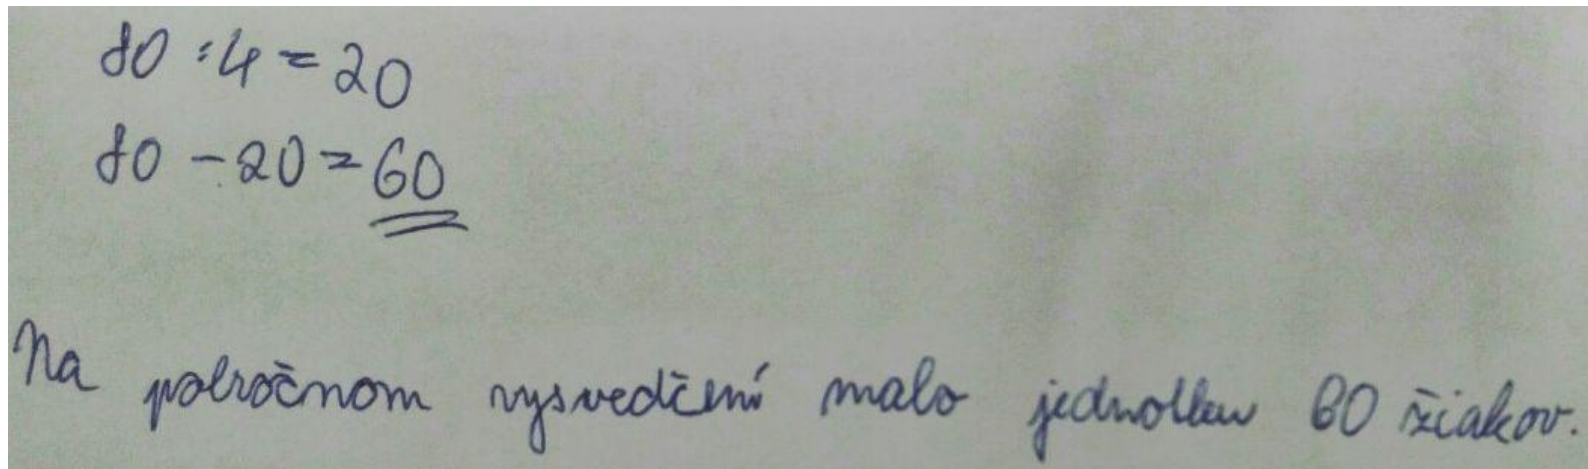 80 : 4 = 20
80 - 20 = 60
Na polročnom vysvedčení malo jednotku 60 žiakov.